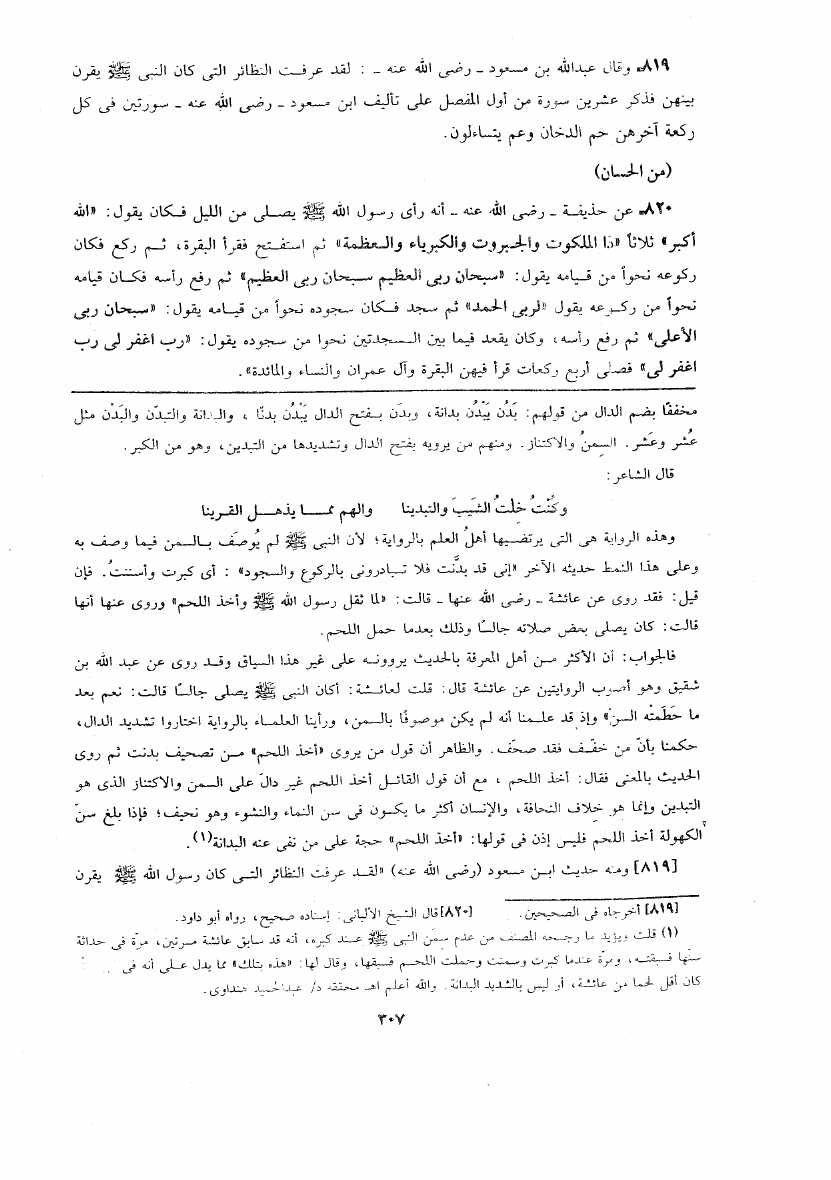 ٨١٩ـ وقال عبدالله بن مسعود ـ رضى الله عنه ـ : لقد عرفت النظائر التى كان النبى ﷺ يقرن
بينهن فذكر عشرين سورة من أول المفصل على تأليف ابن مسعود ـ رضى الله عنه ـ سورتين فى كل
ركعة آخرهن حم الدخان وعم يتساءلون.
(من الحسان)
٨٢٠ـ عن حذيفة ـ رضى الله عنه ـ أنه رأى رسول الله ﷺ يصلى من الليل فكان يقول: «الله
أكبر» ثلاثاً «ذا الملكوت والجبروت والكبرياء والعظمة» ثم استفتح فقرأ البقرة، ثم ركع فكان
ركوعه نحواً من قيامه يقول: «سبحان ربى العظيم سبحان ربى العظيم» ثم رفع رأسه فكان قيامه
نحواً من ركوعه يقول «لربى الحمد» ثم سجد فكان سجوده نحواً من قيامه يقول: «سبحان ربى
الأعلى» ثم رفع رأسه، وكان يقعد فيما بين السجدتين نحوا من سجوده يقول: «رب اغفر لى رب
اغفر لى» فصلى أربع ركعات قرأ فيهن البقرة وآل عمران والنساء والمائدة».
مخففًا بضم الدال من قولهم: بَدُن يَبْدُن بدانة، وبدَن بفتح الدال يَبْدُن بدنًا ، والبدانة والتبدّن والبَدْن مثل
عُشر وعَشر. السمنُ والاكتناز. ومنهم من يرويه بفتح الدال وتشديدها من التبدين، وهو من الكبر.
قال الشاعر:
وكُنْتُ خِلْتُ الشَيبَ والتبدينا والهم مما يذهل القرينا
وهذه الرواية هى التى يرتضيها أهلُ العلم بالرواية؛ لأن النبى ﷺ لم يُوصَف بالسمن فيما وصف به
وعلى هذا النمط حديثه الآخر «إنى قد بدَّنت فلا تبادرونى بالركوع والسجود» : أى كبرت وأسننتُ. فإن
قيل: فقد روى عن عائشة ـ رضى الله عنها ـ قالت: «لما ثقل رسول الله ﷺ وأخذ اللحم» وروى عنها أنها
قالت: كان يصلى بعض صلاته جالسًا وذلك بعدما حمل اللحم.
فالجواب: أن الأكثر من أهل المعرفة بالحديث يروونه على غير هذا السياق وقد روى عن عبد الله بن
شقيق وهو أصوب الروايتين عن عائشة قال: قلت لعائشة: أكان النبى ﷺ يصلى جالسًا قالت: نعم بعد
ما حَطَمَتْه السن» وإذ قد علمنا أنه لم يكن موصوفًا بالسمن، ورأينا العلماء بالرواية اختاروا تشديد الدال،
حكمنا بأنّ من خفّف فقد صحّف. والظاهر أن قول من يروى «أخذ اللحم» من تصحيف بدنت ثم روى
الحديث بالمعنى فقال: أخذ اللحم ، مع أن قول القائل أخذ اللحم غير دالّ على السمن والاكتناز الذى هو
التبدين وإنما هو خلاف النحافة، والإنسان أكثر ما يكون فى سن النماء والنشوء وهو نحيف؛ فإذا بلغ سنّ
الكهولة أخذ اللحم فليس إذن فى قولها: «أخذ اللحم» حجة على من نفى عنه البدانة(١).
[٨١٩] ومنه حديث ابن مسعود (رضى الله عنه) «لقد عرفت النظائر التى كان رسول الله ﷺ يقرن
[٨١٩] أخرجاه فى الصحيحين. [٨٢٠] قال الشيخ الألبانى: إسناده صحيح، رواه أبو داود.
(١) قلت ويؤيد ما رجحه المصنف من عدم سِمَن النبى ﷺ عند كبره، أنه قد سابق عائشة مرتين، مرّة فى حداثة
سنّها فسبقته، ومرّة عندما كبرت وسمنت وحملت اللحم فسبقها، وقال لها: «هذه بتلك» مما يدل على أنه فى
كان أقل لحما من عائشة، أو ليس بالشديد البدانة. والله أعلم اهـ محققه د/ عبدالحميد هنداوى.
٣٠٧